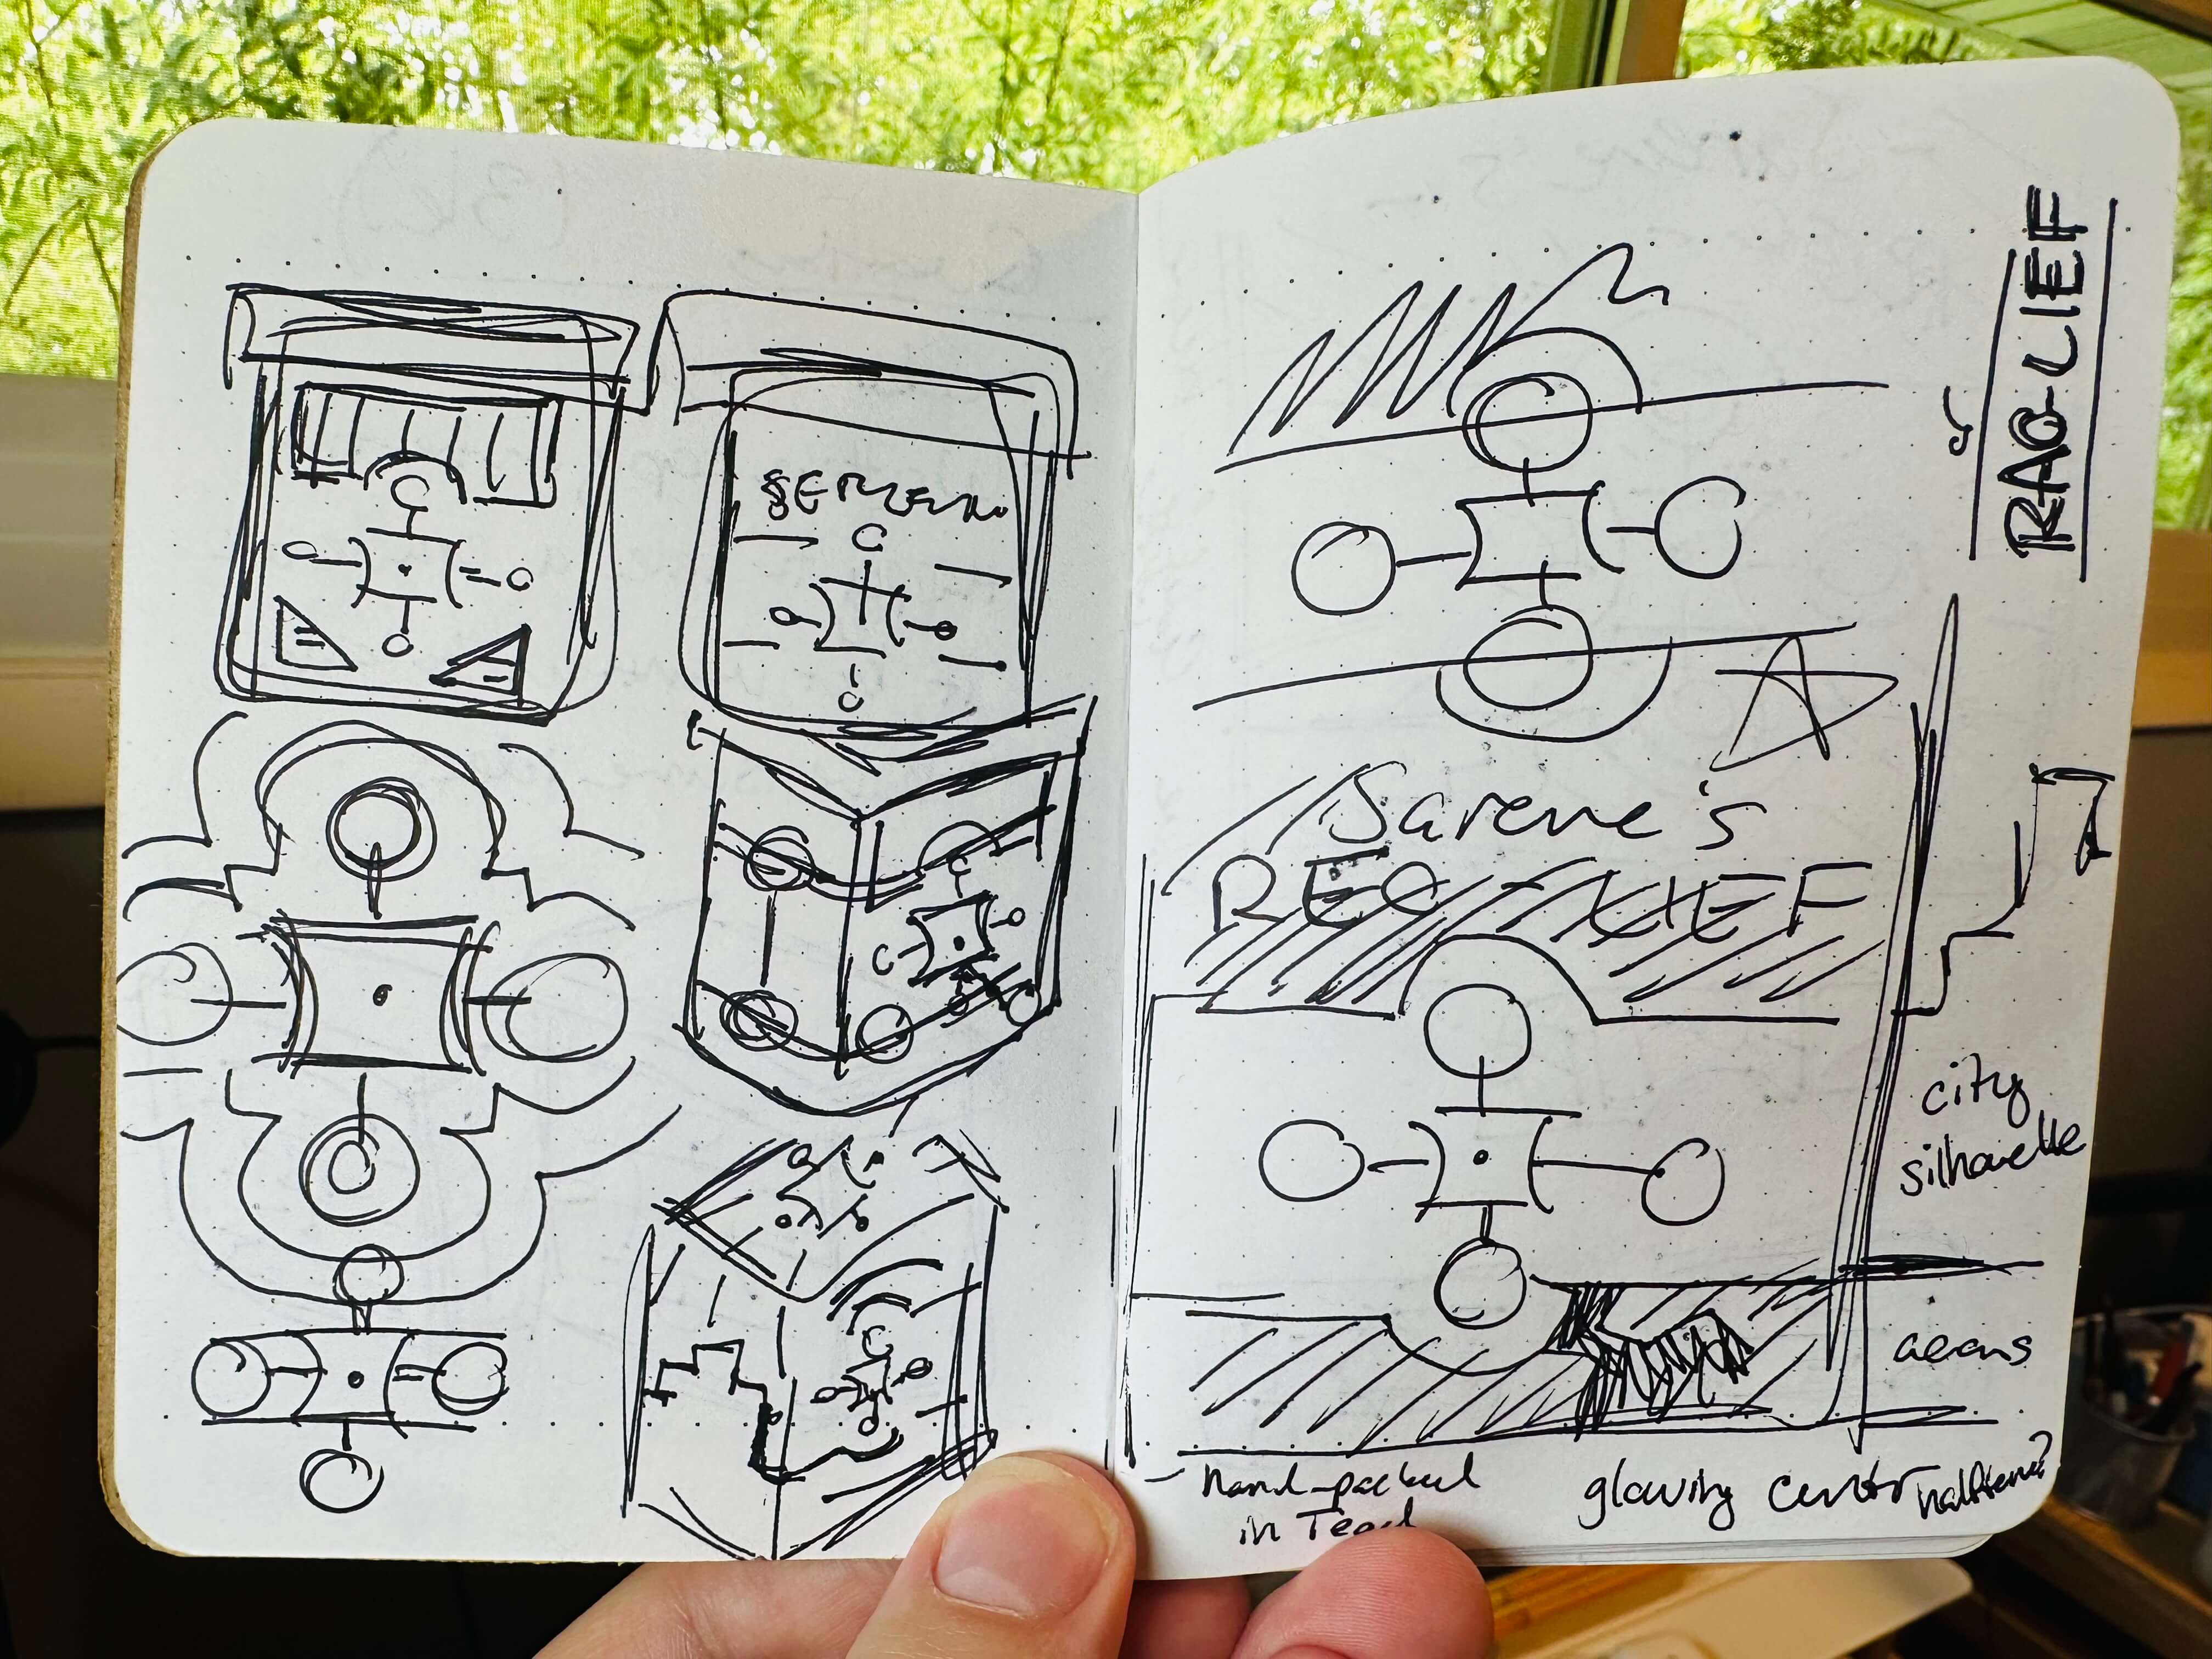 RAO-LIEF
Sarene's
REO-LIEF
city
silhouette
aeons
hand-packed
in Teod
glowing center halftone?